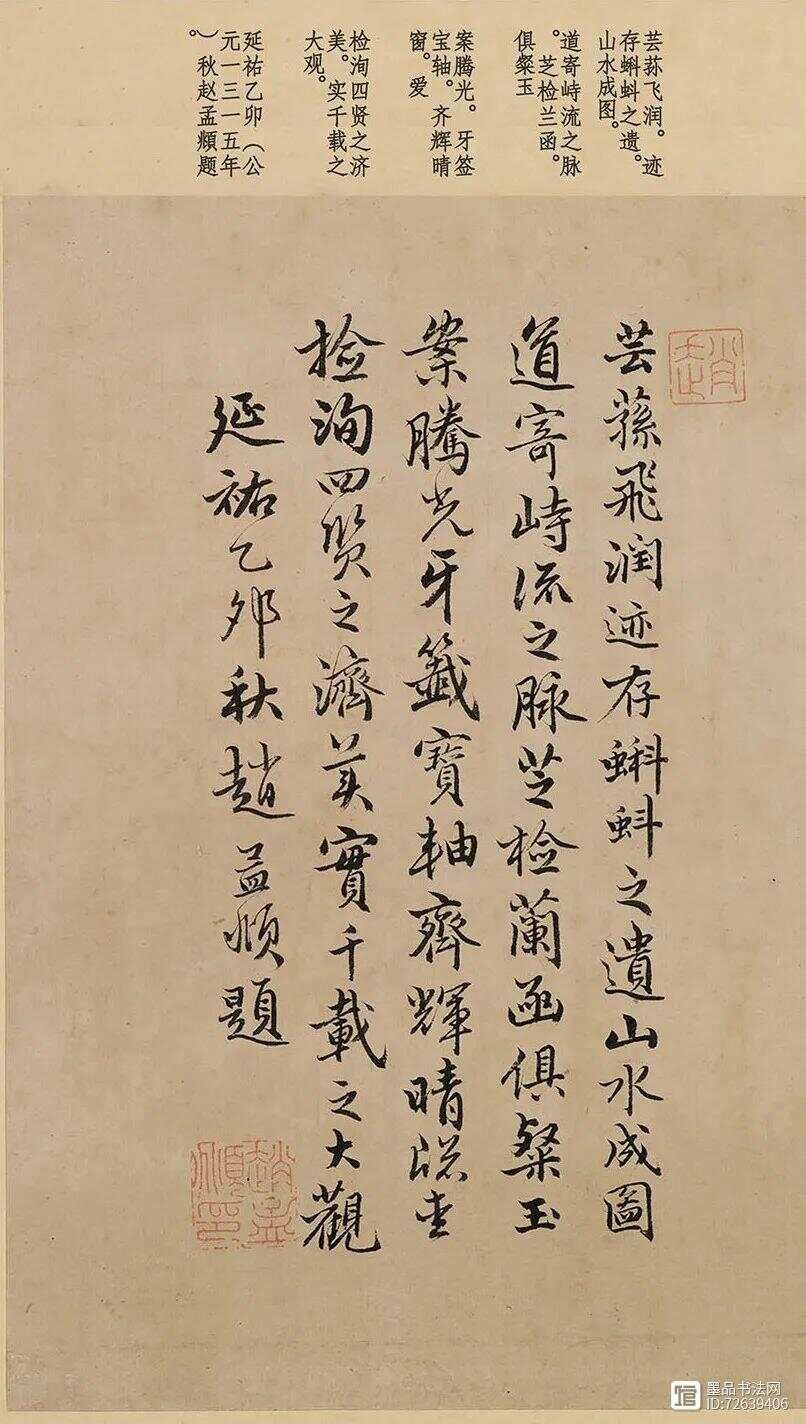 芸荪飞润。迹
存蝌蚪之遗。
山水成图。
道寄峙流之脉
。芝检兰函。
俱粲玉
案腾光。牙签
宝轴。齐辉晴
窗。爱
检洵四贤之济
美。实千载之
大观。
延祐乙卯（公
元一三一五年
）秋赵孟頫题
趙
芸蓀飛潤迹存蝌蚪之遺山水成圖
道寄峙流之脉芝檢蘭函俱粲玉
案騰光牙籤寶軸齊輝晴牕
檢洵四賢之濟美實千載之大觀
延祐乙卯秋趙孟頫題
趙孟頫印
墨品书法网
ID:72639406